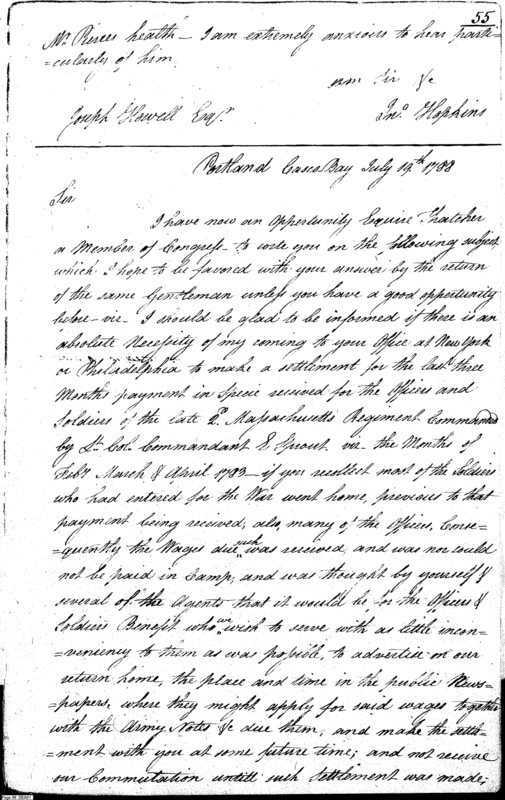 55
Mr. Pierces health - I am extremely anxious to hear parti-
=cularly of him
am Sir &c
Joseph Howell Esqr. Jno. Hopkins
Portland Casco Bay July 19th 1788
Sir
I have now an Opportunity Esquire Thatcher
a Member of Congress - to write you on the following subject,
which I hope to be favored with your answer by the return
of the same Gentleman unless you have a good opportunity
before - viz - I should be glad to be informed if there is an
absolute Necessity of my coming to your Office at New York
or Philadelphia to make a settlment for the last three
Months payment in Specie received for the Officers and
Soldiers of the late 2d. Massachusetts Regiment Commanded
by Lt. Col. Commandant E Sprout viz - the Months of
Feby. March & April 1783 - if you recollect most of the Soldiers
who had entered for the War went home, previous to that
payment being received; also, many of the Officers, Conse-
=quently the Wages due such was received, and was nor could
not be paid in Camp; and was thought by yourself &
several of the Agents that it would be for the Officers &
Soldiers Benefit who we wish to serve with as little incon-
=veniency to them as was possible, to advertise on our
return home, the place and time in the public News-
=papers, where they might apply for said wages together
with the Army Notes &c due them; and make the settle-
=ment with you at some future time; and not receive
our Commutation untill such settlement was made;